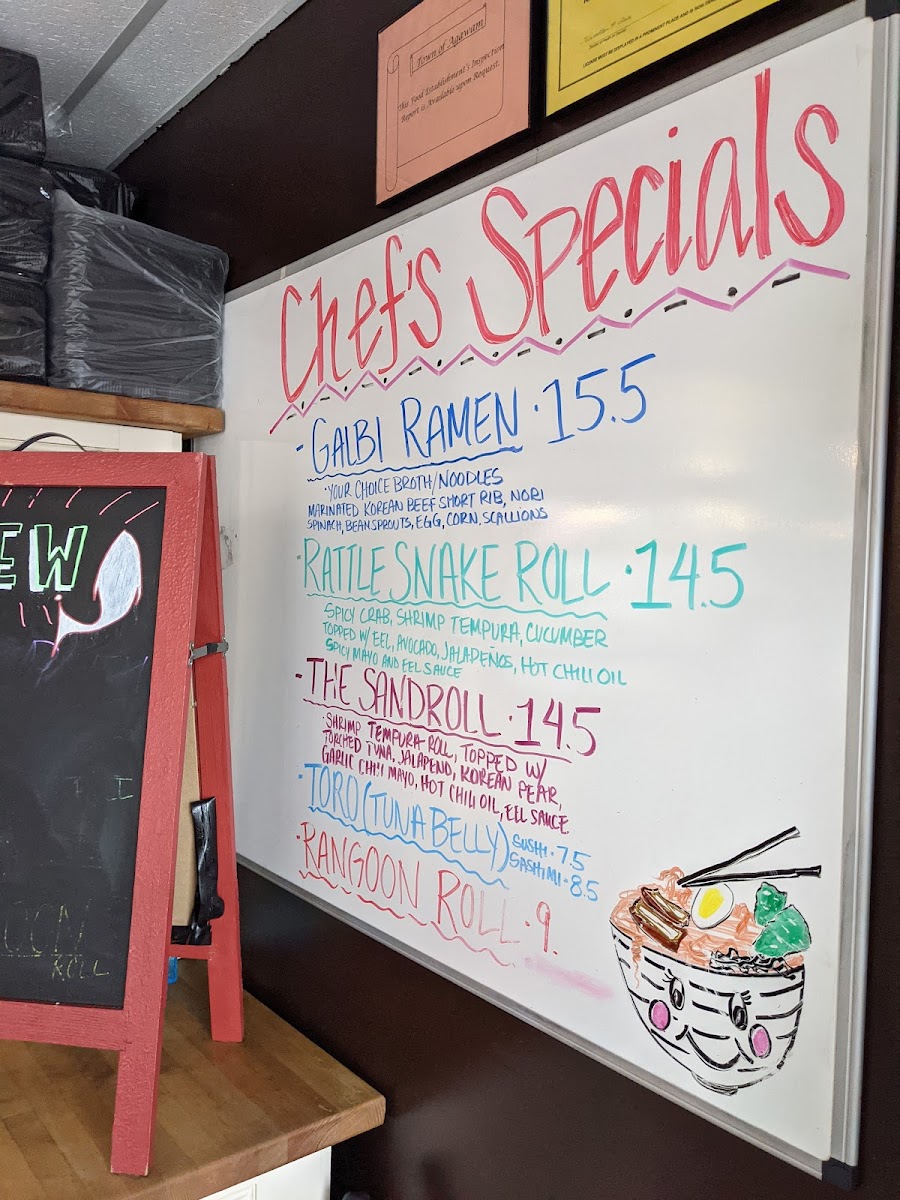 Town of Agawam
This Food Establishment's Inspection
Report is Available upon Request.
LICENSE MUST BE DISPLAYED IN A PROMINENT PLACE AND IS NON
Chef's Specials
- GALBI RAMEN · 15.5
· YOUR CHOICE BROTH/NOODLES
MARINATED KOREAN BEEF SHORT RIB, NORI
SPINACH, BEANSPROUTS, EGG, CORN, SCALLIONS
· RATTLESNAKE ROLL · 14.5
SPICY CRAB, SHRIMP TEMPURA, CUCUMBER
TOPPED W/ EEL, AVOCADO, JALAPEÑOS, HOT CHILI OIL
SPICY MAYO AND EEL SAUCE
- THE SANDROLL · 14.5
· SHRIMP TEMPURA ROLL, TOPPED W/
TORCHED TUNA, JALAPENO, KOREAN PEAR,
GARLIC CHILI MAYO, HOT CHILI OIL, EEL SAUCE
· TORO (TUNA BELLY) SUSHI · 7.5
SASHIMI · 8.5
· RANGOON ROLL · 9.
EW
ROLL